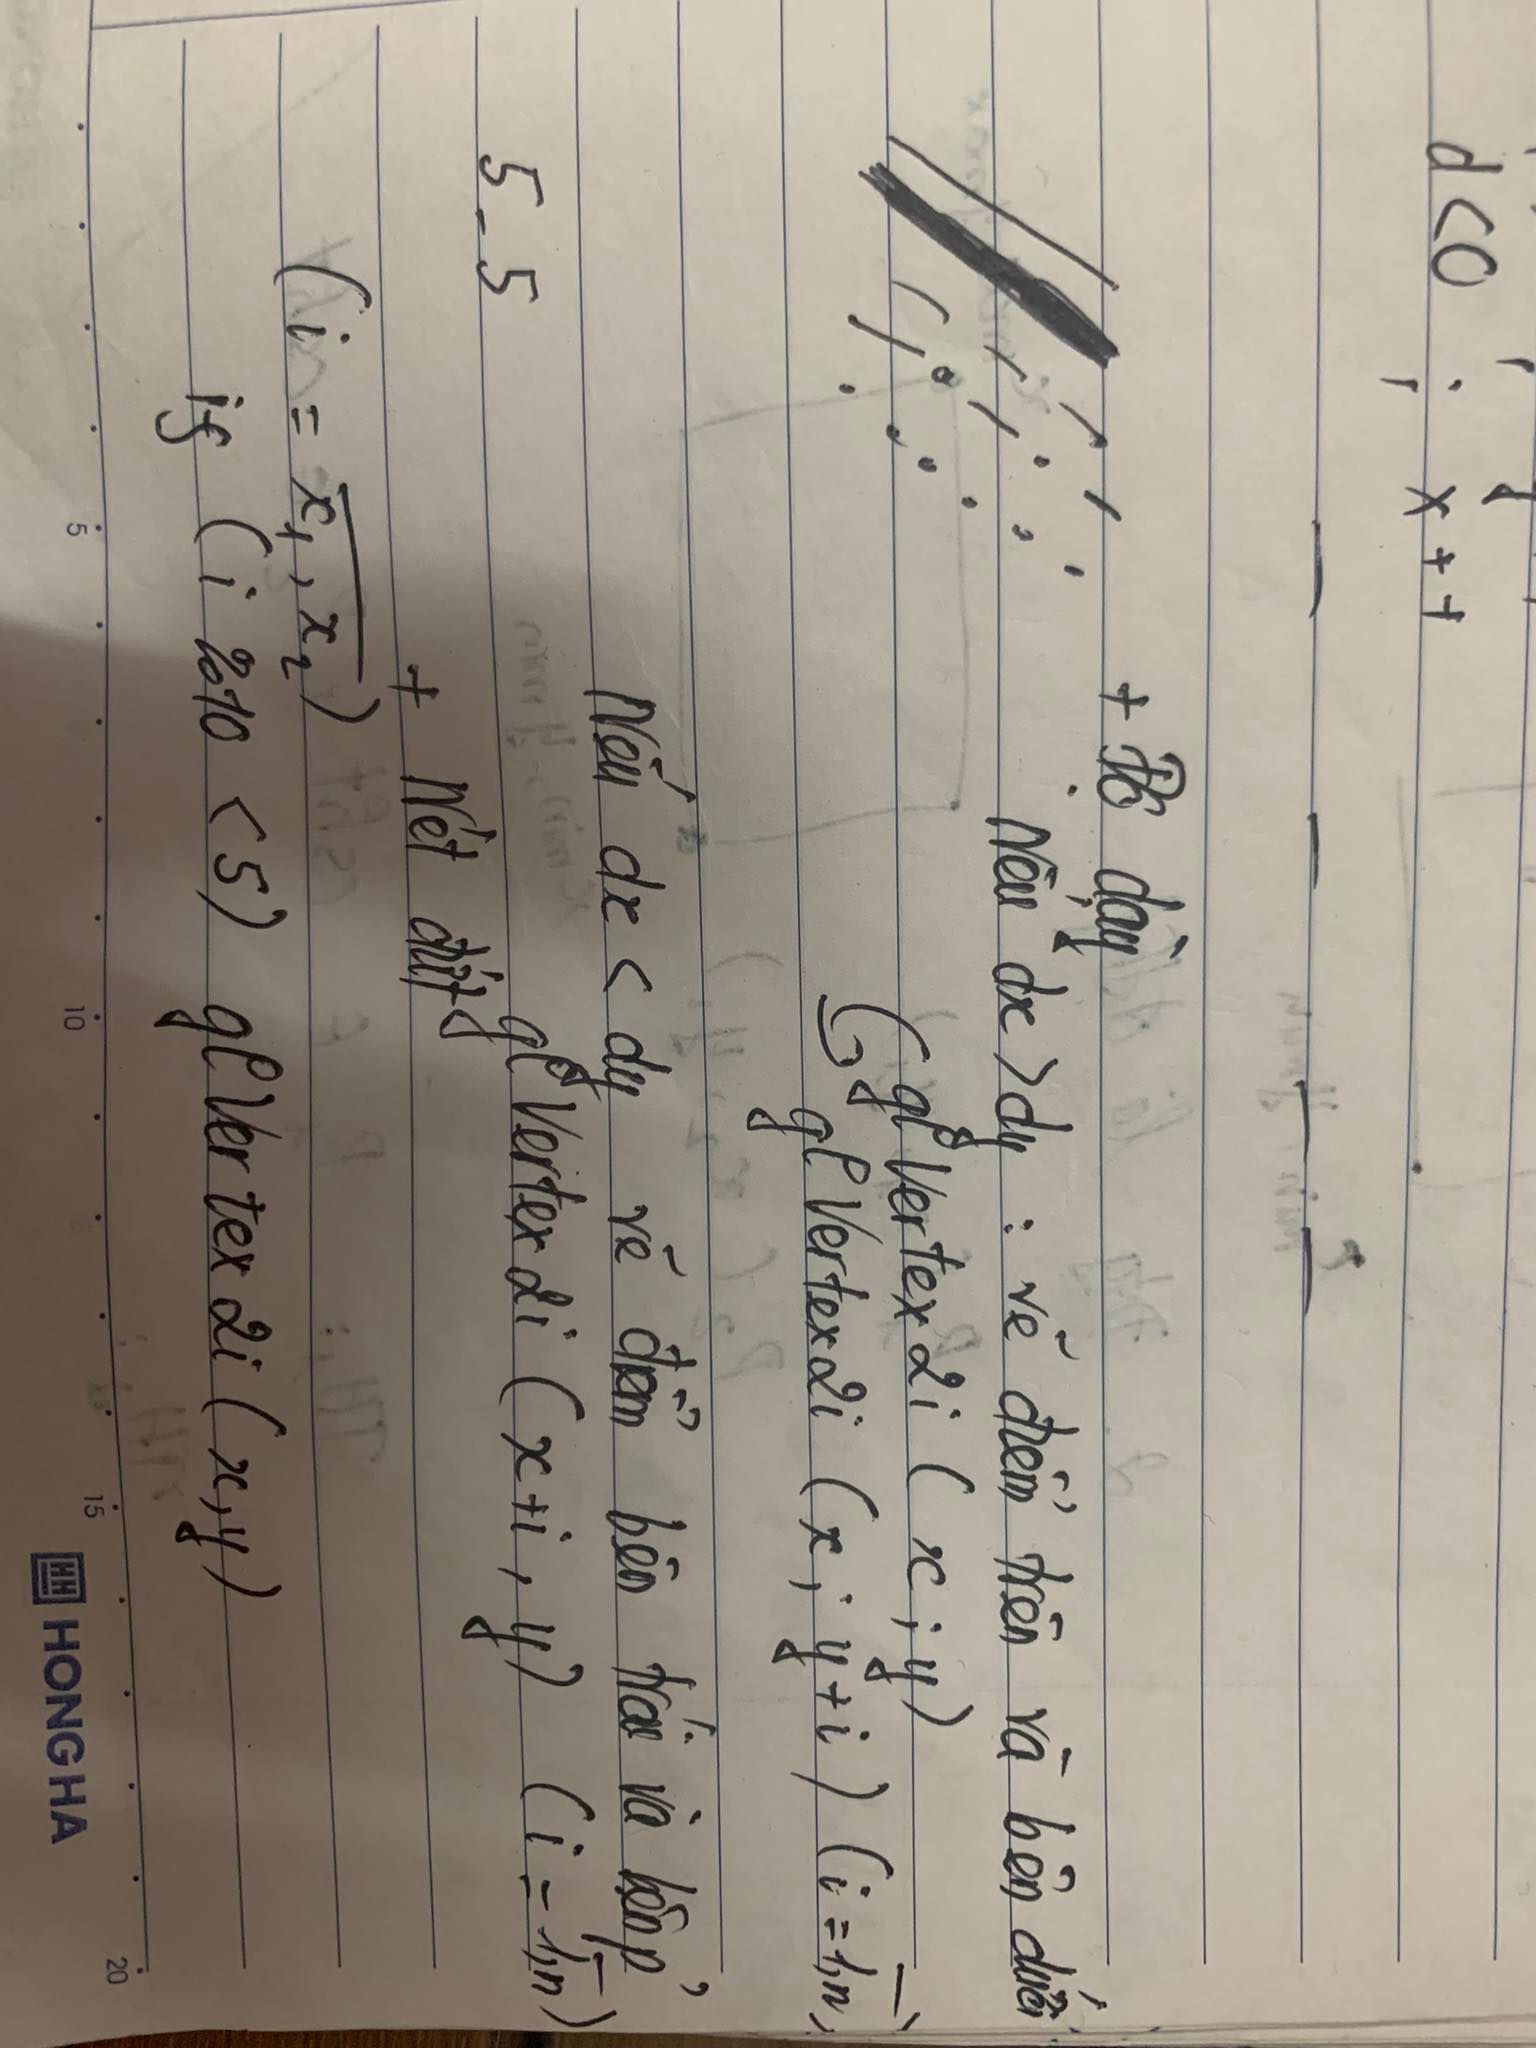 d < 0 ; x + +
+ Độ dày
Nếu dx > dy : vẽ điểm trên và bên dưới
glVertex2i ( x ; y )
glVertex2i ( x ; y + i ) ( i = 1,n )
Nếu dx < dy vẽ điểm bên trái và bên p'
glVertex2i ( x+i , y ) ( i = 1,n )
5 - 5
+ Nét đứt
( i = x₁ , x₂ )
if ( i %10 < 5 ) glVertex2i ( x, y )
5 10 15 20
HH HONG HA